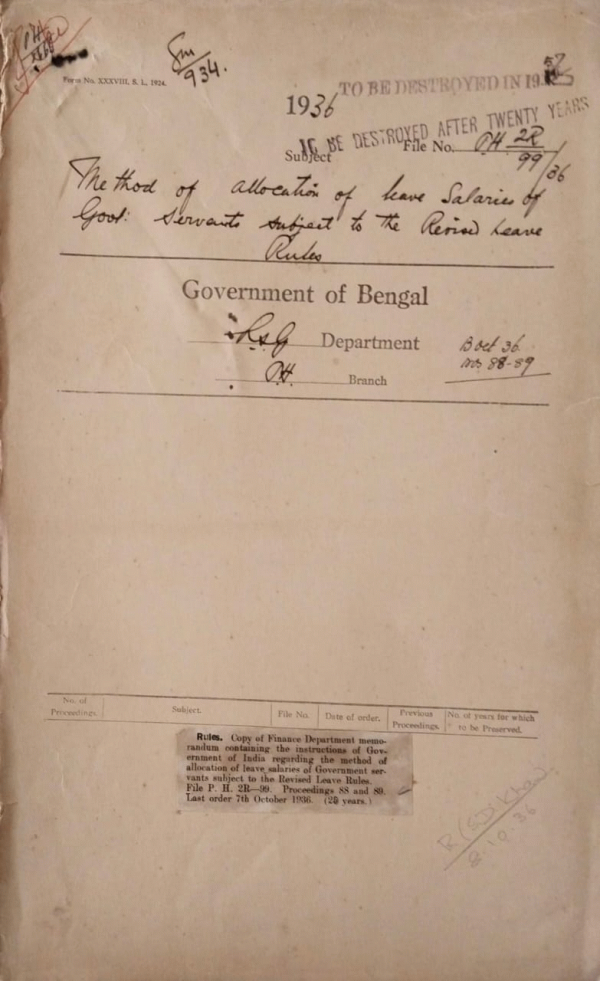 Sm
934.
Form No. XXXVIII, S. L. 1924.
TO BE DESTROYED IN 19 57
1936
TO BE DESTROYED AFTER TWENTY YEARS
File No. PH 2R
99/36
Subject
Method of allocation of leave Salaries of
Govt: servants subject to the Revised Leave
Rules
Government of Bengal
Department
P.H. Branch
B Oct 36
nos 88-89
No. of Proceedings.
Subject.
File No.
Date of order.
Previous Proceedings.
No. of years for which to be Preserved.
Rules. Copy of Finance Department memo-
randum containing the instructions of Gov-
ernment of India regarding the method of
allocation of leave salaries of Government ser-
vants subject to the Revised Leave Rules.
File P. H. 2R—99. Proceedings 88 and 89.
Last order 7th October 1936. (25 years.)
8.10.36